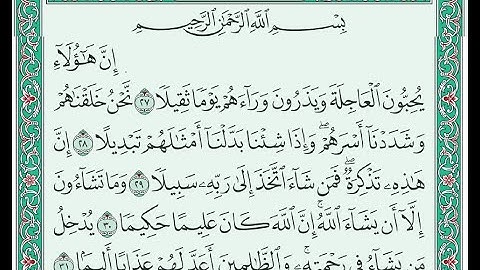 بِسْمِ ٱللَّهِ ٱلرَّحْمَٰنِ ٱلرَّحِيمِ
إِنَّ هَٰٓؤُلَآءِ
يُحِبُّونَ ٱلْعَاجِلَةَ وَيَذَرُونَ وَرَآءَهُمْ يَوْمًا ثَقِيلًا ٢٧ نَّحْنُ خَلَقْنَٰهُمْ
وَشَدَدْنَآ أَسْرَهُمْ ۖ وَإِذَا شِئْنَا بَدَّلْنَآ أَمْثَٰلَهُمْ تَبْدِيلًا ٢٨ إِنَّ
هَٰذِهِۦ تَذْكِرَةٌ ۖ فَمَن شَآءَ ٱتَّخَذَ إِلَىٰ رَبِّهِۦ سَبِيلًا ٢٩ وَمَا تَشَآءُونَ
إِلَّآ أَن يَشَآءَ ٱللَّهُ ۚ إِنَّ ٱللَّهَ كَانَ عَلِيمًا حَكِيمًا ٣٠ يُدْخِلُ
مَن يَشَآءُ فِى رَحْمَتِهِۦ ۚ وَٱلظَّٰلِمِينَ أَعَدَّ لَهُمْ عَذَابًا أَلِيمًۢا ٣١